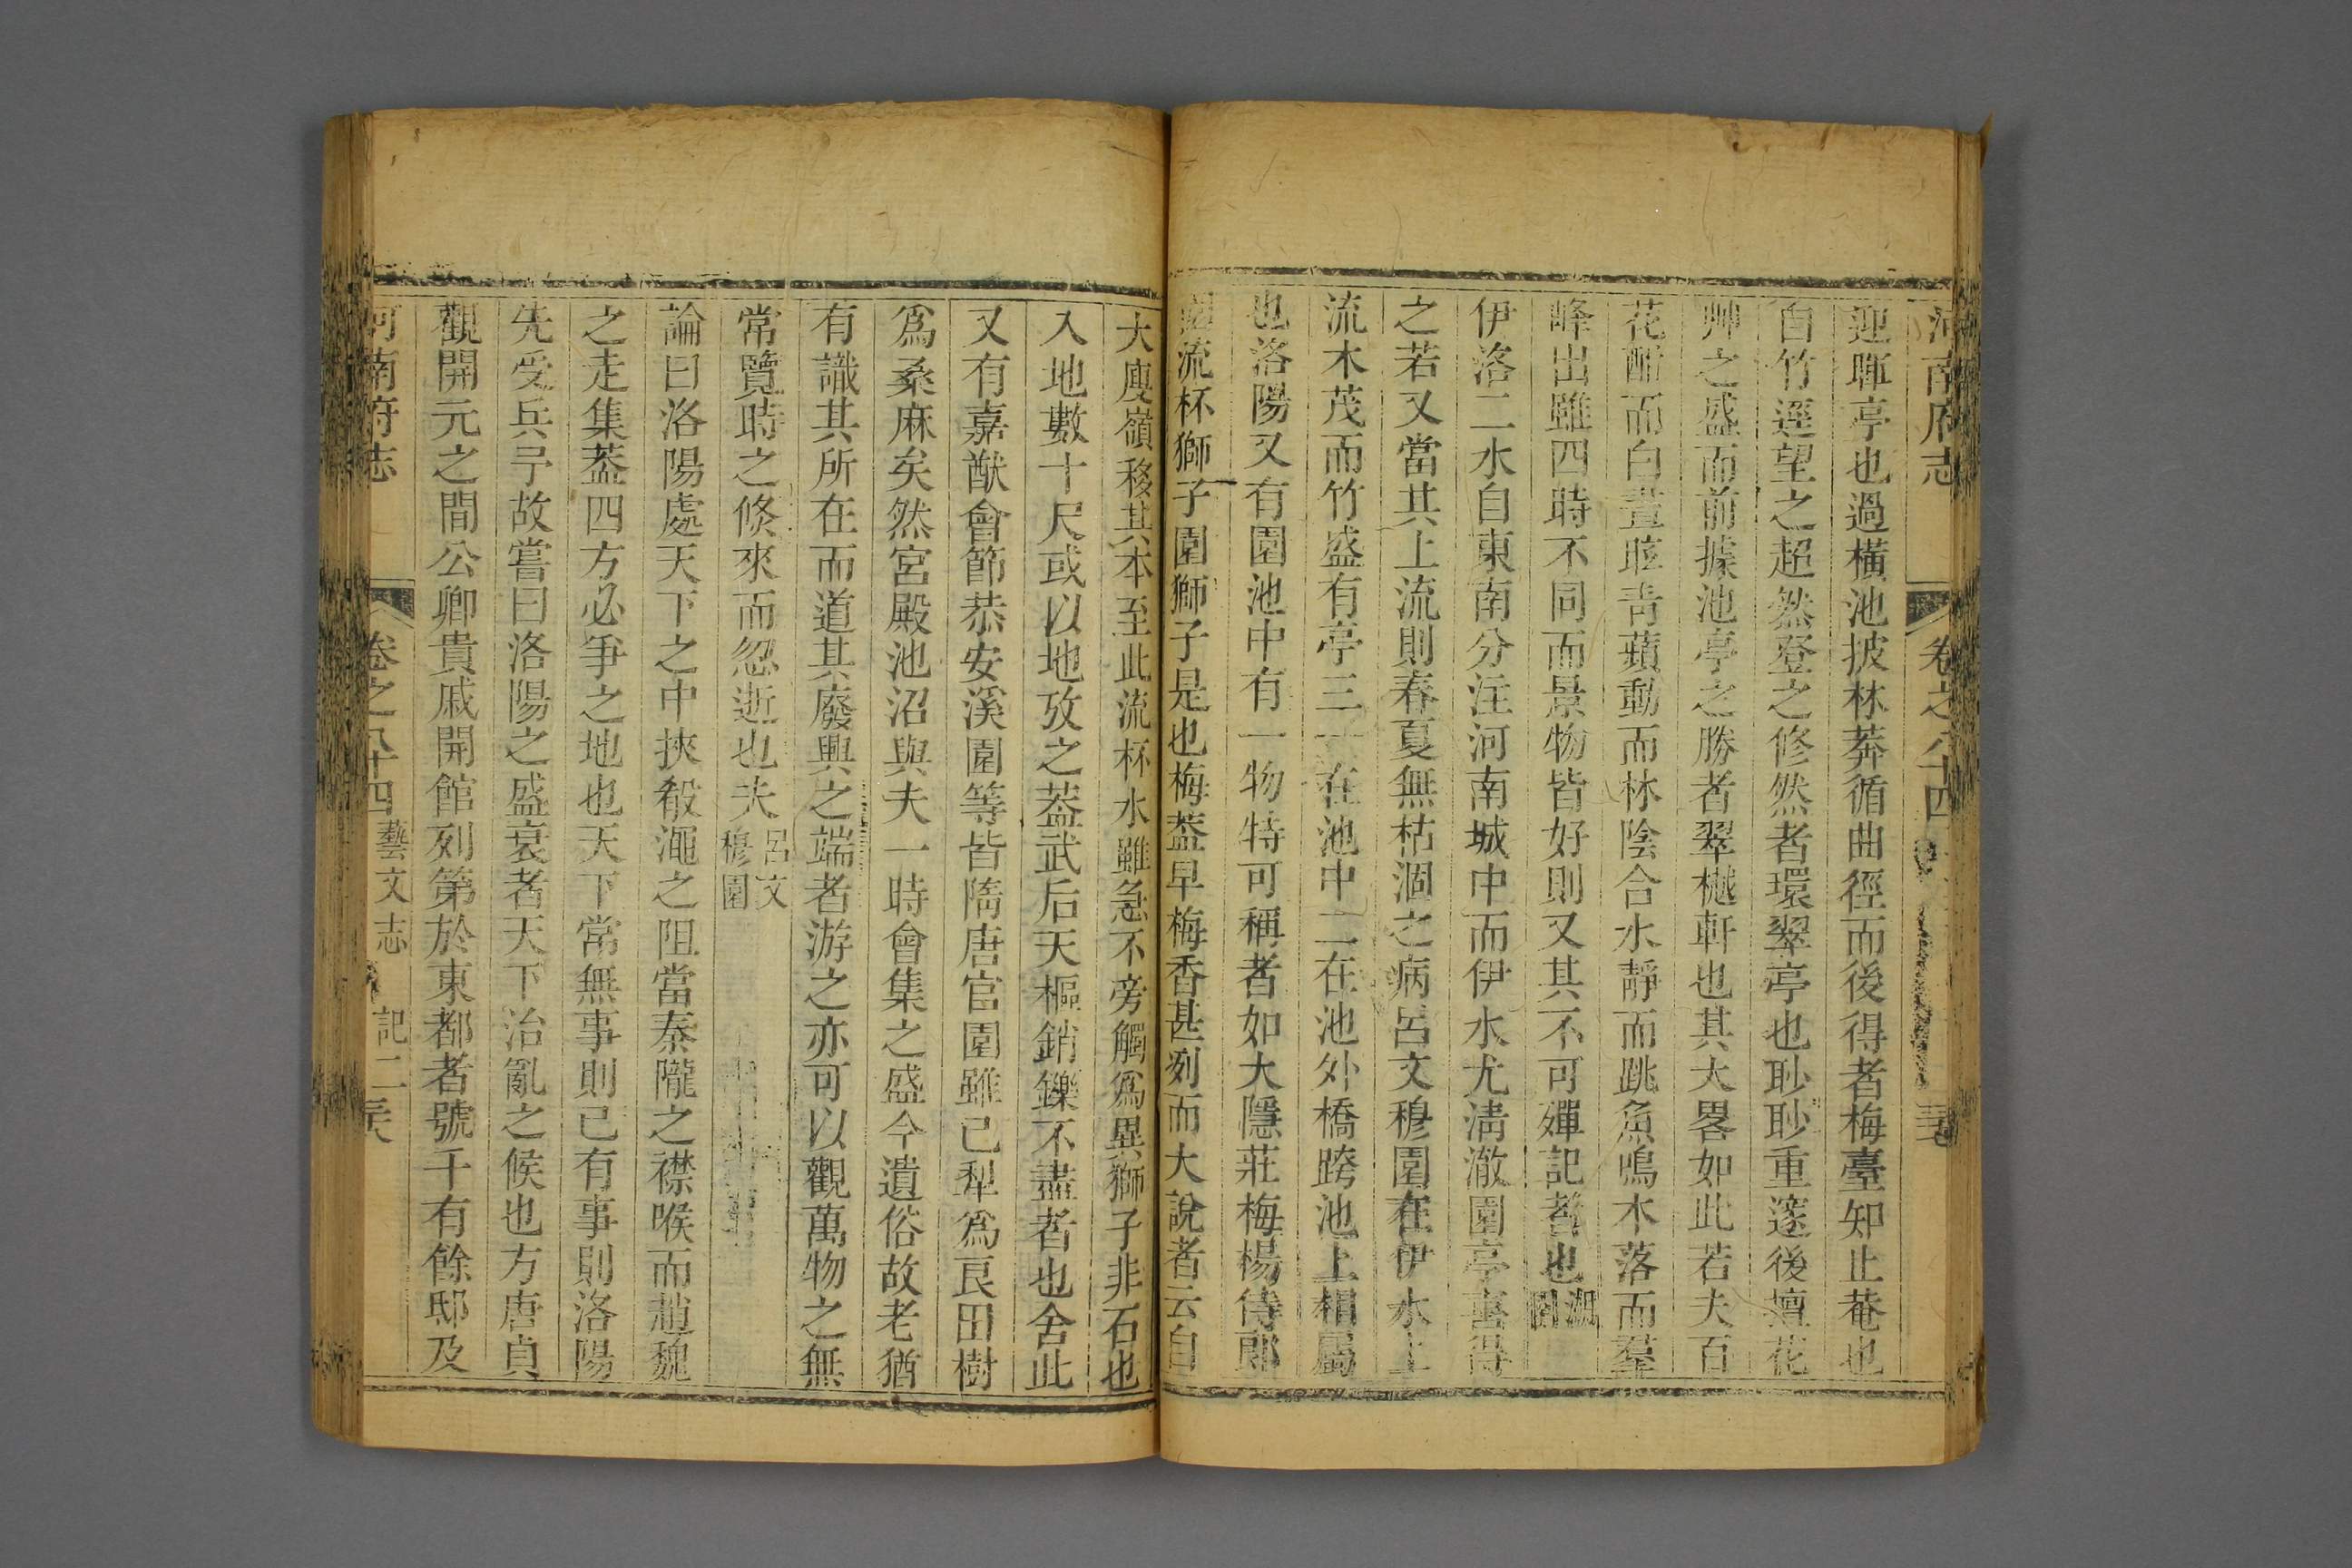 河南府志 卷之八十四
迎暉亭也過橫池披林莽循曲徑而後得者梅臺知止菴也
自竹逕望之超然登之修然者環翠亭也眇眇重邃後擅花
艸之盛而前據池亭之勝者翠樾軒也其大畧如此若夫百
花酣而白晝眩靑蘋動而林陰合水靜而跳魚鳴木落而羣
峰出雖四時不同而景物皆好則又其不可殫記者也湖園
伊洛二水自東南分注河南城中而伊水尤淸澈園亭喜得
之若又當其上流則春夏無枯涸之病呂文穆園在伊水上
流木茂而竹盛有亭三一在池中二在池外橋跨池上相屬
也洛陽又有園池中有一物特可稱者如大隱莊梅楊侍郎
園流杯獅子園獅子是也梅葢早梅香甚烈而大說者云自
大庾嶺移其本至此流杯水雖急不旁觸爲異獅子非石也
入地數十尺或以地攷之葢武后天樞銷鑠不盡者也舍此
又有嘉猷會節恭安溪園等皆隋唐官園雖已犁爲良田樹
爲桑麻矣然宮殿池沼與夫一時會集之盛今遺俗故老猶
有識其所在而道其廢興之端者游之亦可以觀萬物之無
常覽時之倏來而忽逝也夫呂文穆園
論曰洛陽處天下之中挾殽澠之阻當秦隴之襟喉而趙魏
之走集葢四方必爭之地也天下常無事則已有事則洛陽
先受兵予故嘗曰洛陽之盛衰者天下治亂之候也方唐貞
觀開元之間公卿貴戚開館列第於東都者號千有餘邸及
河南府志 卷之八十四 藝文志 記二